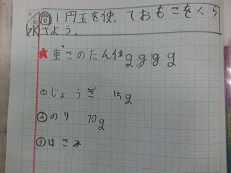 問 1円玉を使っておもさをくら
べよう。
★重さのたんい g g g g
①じょうぎ 15g
②のり 70g
③はさみ